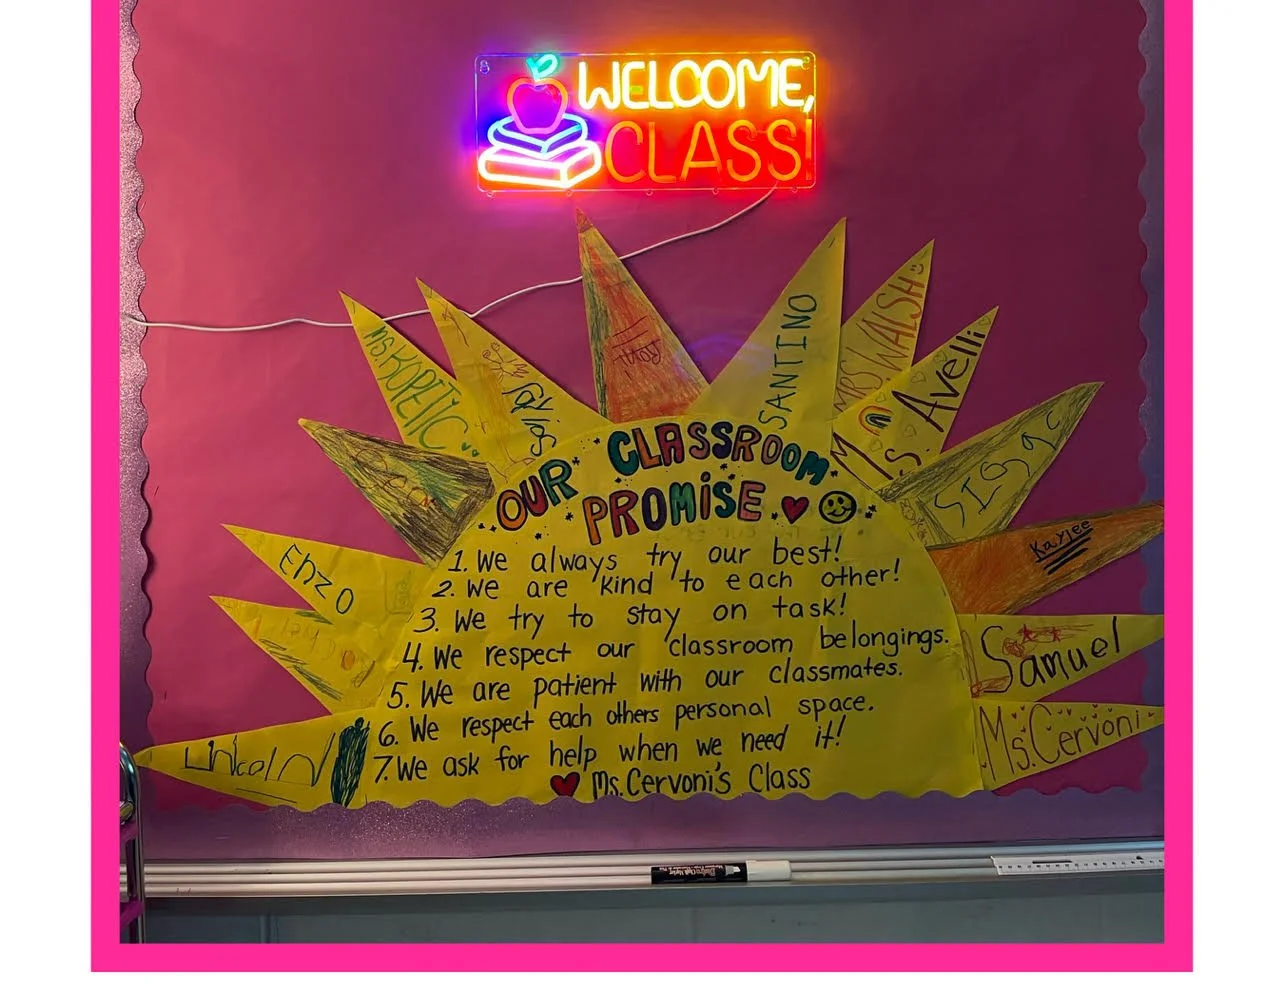 WELCOME,
CLASS!
Ms. KOPETIC
SANTINO
MRS WALSH
Ms. Avelli
Enzo
Kaylee
Samuel
Ms. Cervoni
Lincoln
OUR CLASSROOM
PROMISE
1. We always try our best!
2. We are kind to each other!
3. We try to stay on task!
4. We respect our classroom belongings.
5. We are patient with our classmates.
6. We respect each others personal space.
7. We ask for help when we need it!
Ms. Cervoni's Class